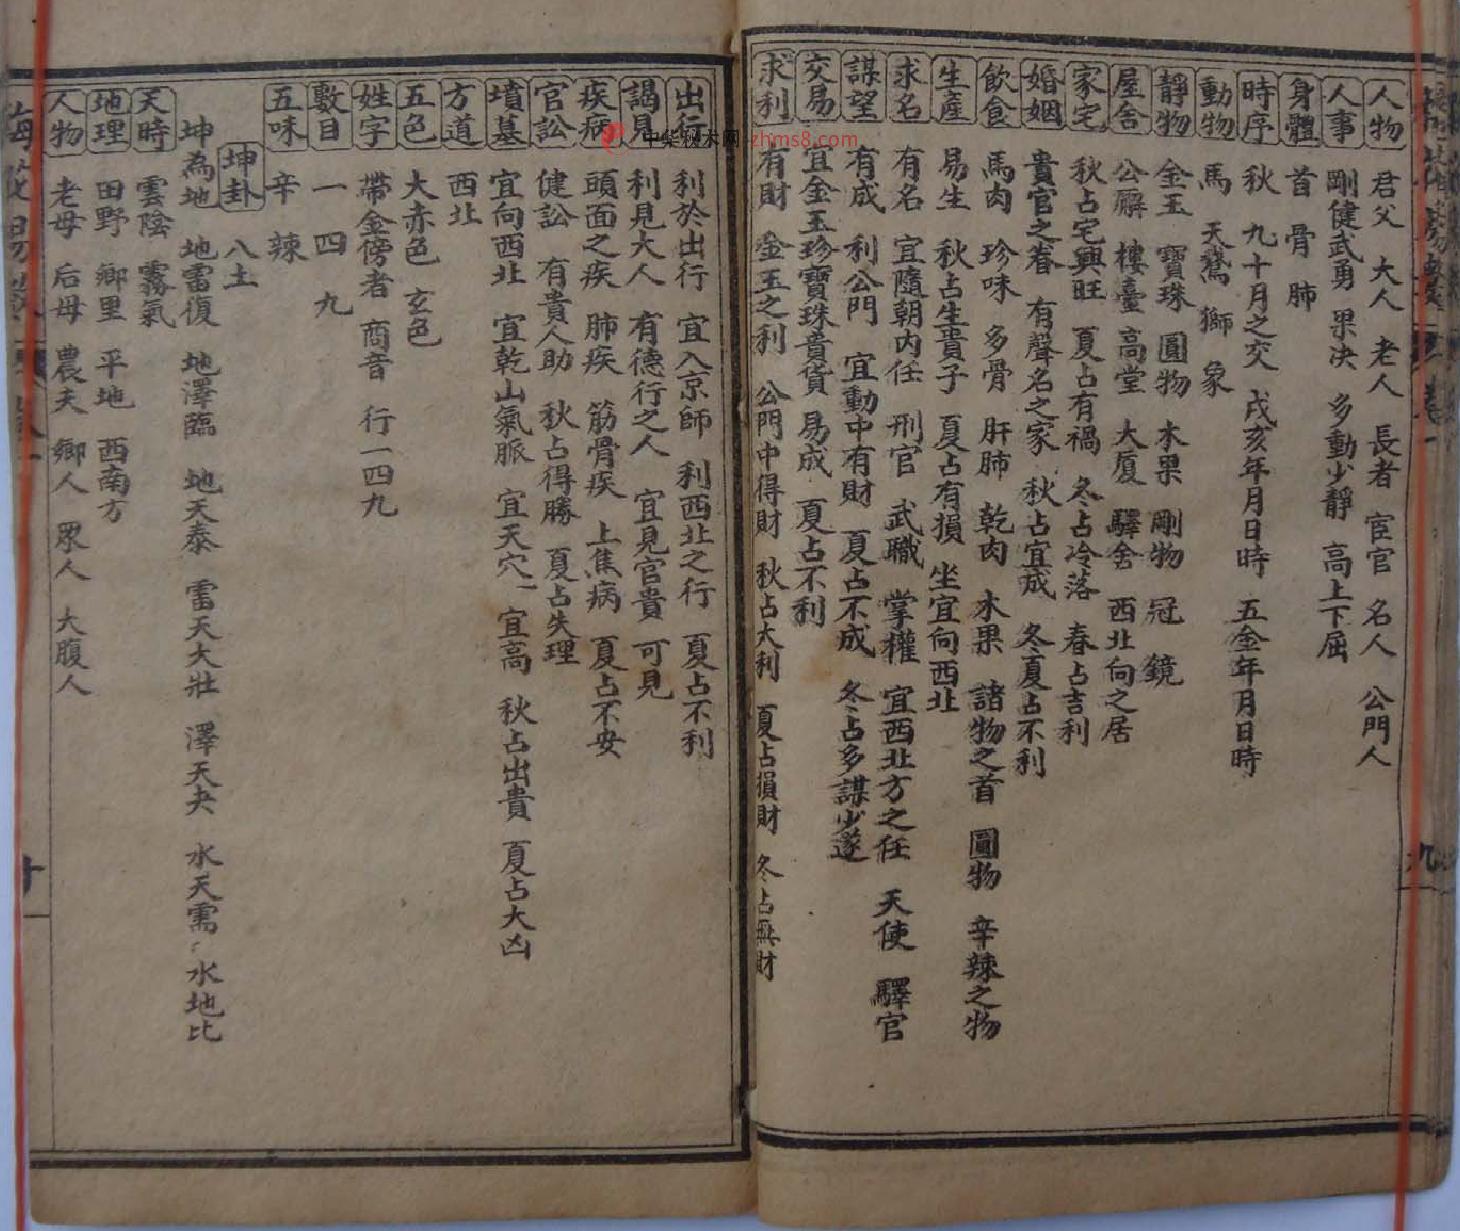 人物 君父 大人 老人 長者 宦官 名人 公門人
人事 剛健武勇 果决 多動少靜 高上下屈
身體 首 骨 肺
時序 秋 九十月之交 戌亥年月日時 五金年月日時
動物 馬 天鵞 獅 象
靜物 金玉 寶珠 圓物 木果 剛物 冠 鏡
屋舍 公廨 樓臺 高堂 大厦 驛舍 西北向之居
家宅 秋占宅興旺 夏占有禍 冬占冷落 春占吉利
婚姻 貴官之眷 有聲名之家 秋占宜成 冬夏占不利
飲食 馬肉 珍味 多骨 肝肺 乾肉 木果 諸物之首 圓物 辛辣之物
生產 易生 秋占生貴子 夏占有損 坐宜向西北
求名 有名 宜隨朝内任 刑官 武職 掌權 宜西北方之任 天使 驛官
謀望 有成 利公門 宜動中有財 夏占不成 冬占多謀少遂
交易 宜金玉珍寶珠貴貨 易成 夏占不利
求利 有財 金玉之利 公門中得財 秋占大利 夏占損財 冬占無財
九
出行 利於出行 宜入京師 利西北之行 夏占不利
謁見 利見大人 有德行之人 宜見官貴 可見
疾病 頭面之疾 肺疾 筋骨疾 上焦病 夏占不安
官訟 健訟 有貴人助 秋占得勝 夏占失理
墳墓 宜向西北 宜乾山氣脈 宜天穴 宜高 秋占出貴 夏占大凶
方道 西北
五色 大赤色 玄色
姓字 帶金傍者 商音 行一四九
數目 一 四 九
五味 辛 辣
坤卦 八土
坤為地 地雷復 地澤臨 地天泰 雷天大壯 澤天夬 水天需 水地比
天時 雲陰 霧氣
地理 田野 鄉里 平地 西南方
人物 老母 后母 農夫 鄉人 眾人 大腹人
十
中华秋木网 zhms8.com